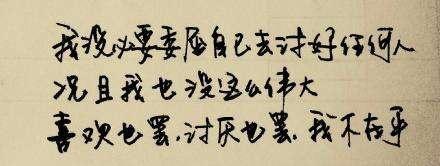 我没必要委屈自己去讨好任何人
况且我也没这么伟大
喜欢也罢.讨厌也罢.我不在乎